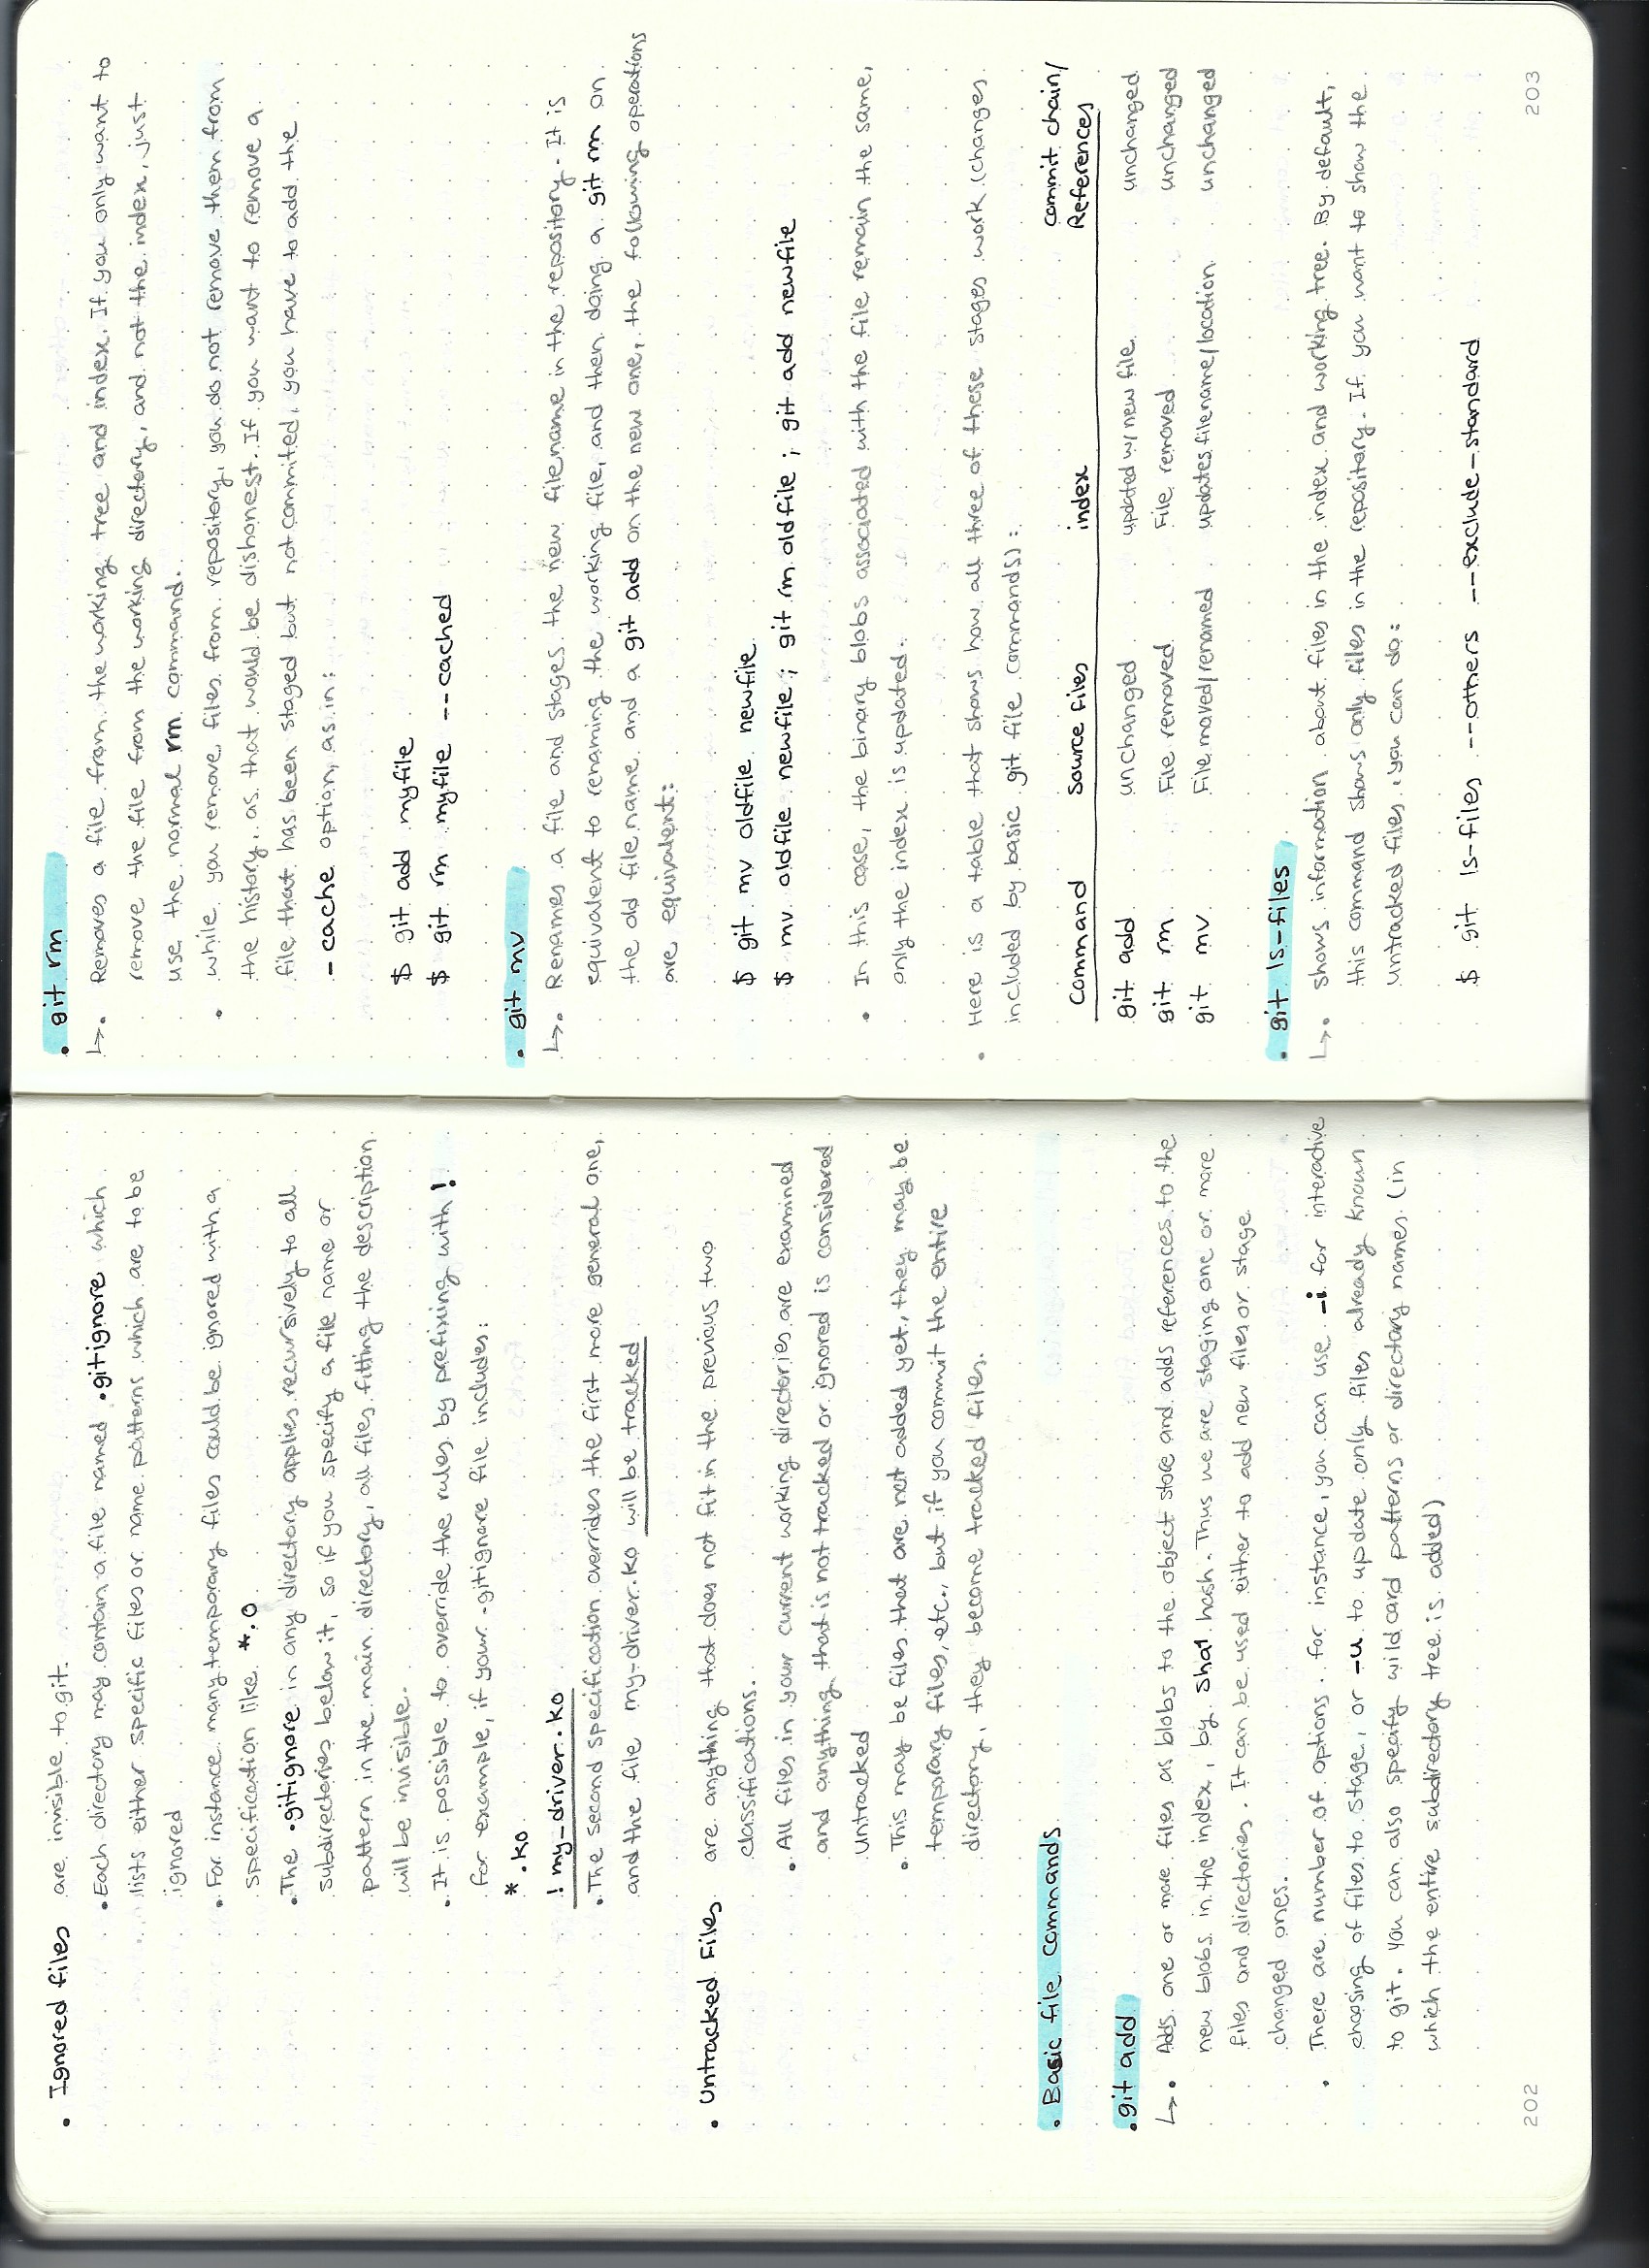 . Ignored files are invisible to git.
. Each directory may contain a file named .gitignore which
lists either specific files or name patterns which are to be
ignored
. For instance many temporary files could be ignored with a
specification like *.o
. The .gitignore in any directory applies recursively to all
subdirectories below it, so if you specify a file name or
pattern in the main directory, all files fitting the description
will be invisible.
. It is possible to override the rules by prefixing with !
for example, if your .gitignore file includes:
*.ko
! my_driver.ko
. The second specification overrides the first more general one,
and the file my-driver.ko will be tracked
. Untracked Files are anything that does not fit in the previous two
classifications.
. All files in your current working directories are examined
and anything that is not tracked or ignored is considered
untracked
. This may be files that are not added yet, they may be
temporary files, etc., but if you commit the entire
directory, they become tracked files.
. Basic file commands
. git add
↳. Adds one or more files as blobs to the object store and adds references to the
new blobs in the index, by sha1 hash. Thus we are staging one or more
files and directories. It can be used either to add new files or stage
changed ones.
. There are number of options. for instance, you can use -i for interactive
choosing of files to stage, or -u to update only files already known
to git. You can also specify wildcard patterns or directory names. (in
which the entire subdirectory tree is added)
202
. git rm
↳. Removes a file from the working tree and index. If you only want to
remove the file from the working directory, and not the index, just
use the normal rm command.
. while you remove files from repository, you do not remove them from
the history, as that would be dishonest. If you want to remove a
file that has been staged but not commited, you have to add the
- cache option, as in:
$ git add myfile
$ git rm myfile --cached
. git mv
↳. Renames a file and stages the new filename in the repository. It is
equivalent to renaming the working file, and then doing a git rm on
the old file name and a git add on the new one, the following operations
are equivalent:
$ git mv oldfile newfile
$ mv oldfile newfile ; git rm oldfile ; git add newfile
. In this case, the binary blobs associated with the file remain the same,
only the index is updated.
. Here is a table that shows how all three of these stages work (changes
included by basic git file commands):
Command Source files index commit chain/
References
git add unchanged updated w/ new file unchanged
git rm File removed File removed unchanged
git mv File moved/renamed updates filename/location unchanged
. git ls-files
↳. shows information about files in the index and working tree. By default,
this command shows only files in the repository. If you want to show the
untracked files, you can do:
$ git ls-files --others --exclude-standard
203